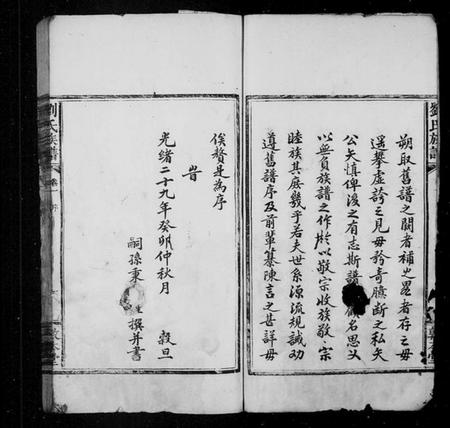 劉氏族譜
朔取舊譜之闕者補之畧者存之毋
遥攀虛誇之見毋矜奇臆断之私矢
公矢慎俾後之有志斯譜 名思义
以無負族譜之作於以敬宗收族敬宗
睦族其庶幾乎若夫世系源流規誡劝
遵舊譜序及前輩纂陳言之甚詳毋
俟贅是為序
旹
光緒二十九年癸卯仲秋月 穀旦
嗣孫秉 撰并書
劉氏族譜